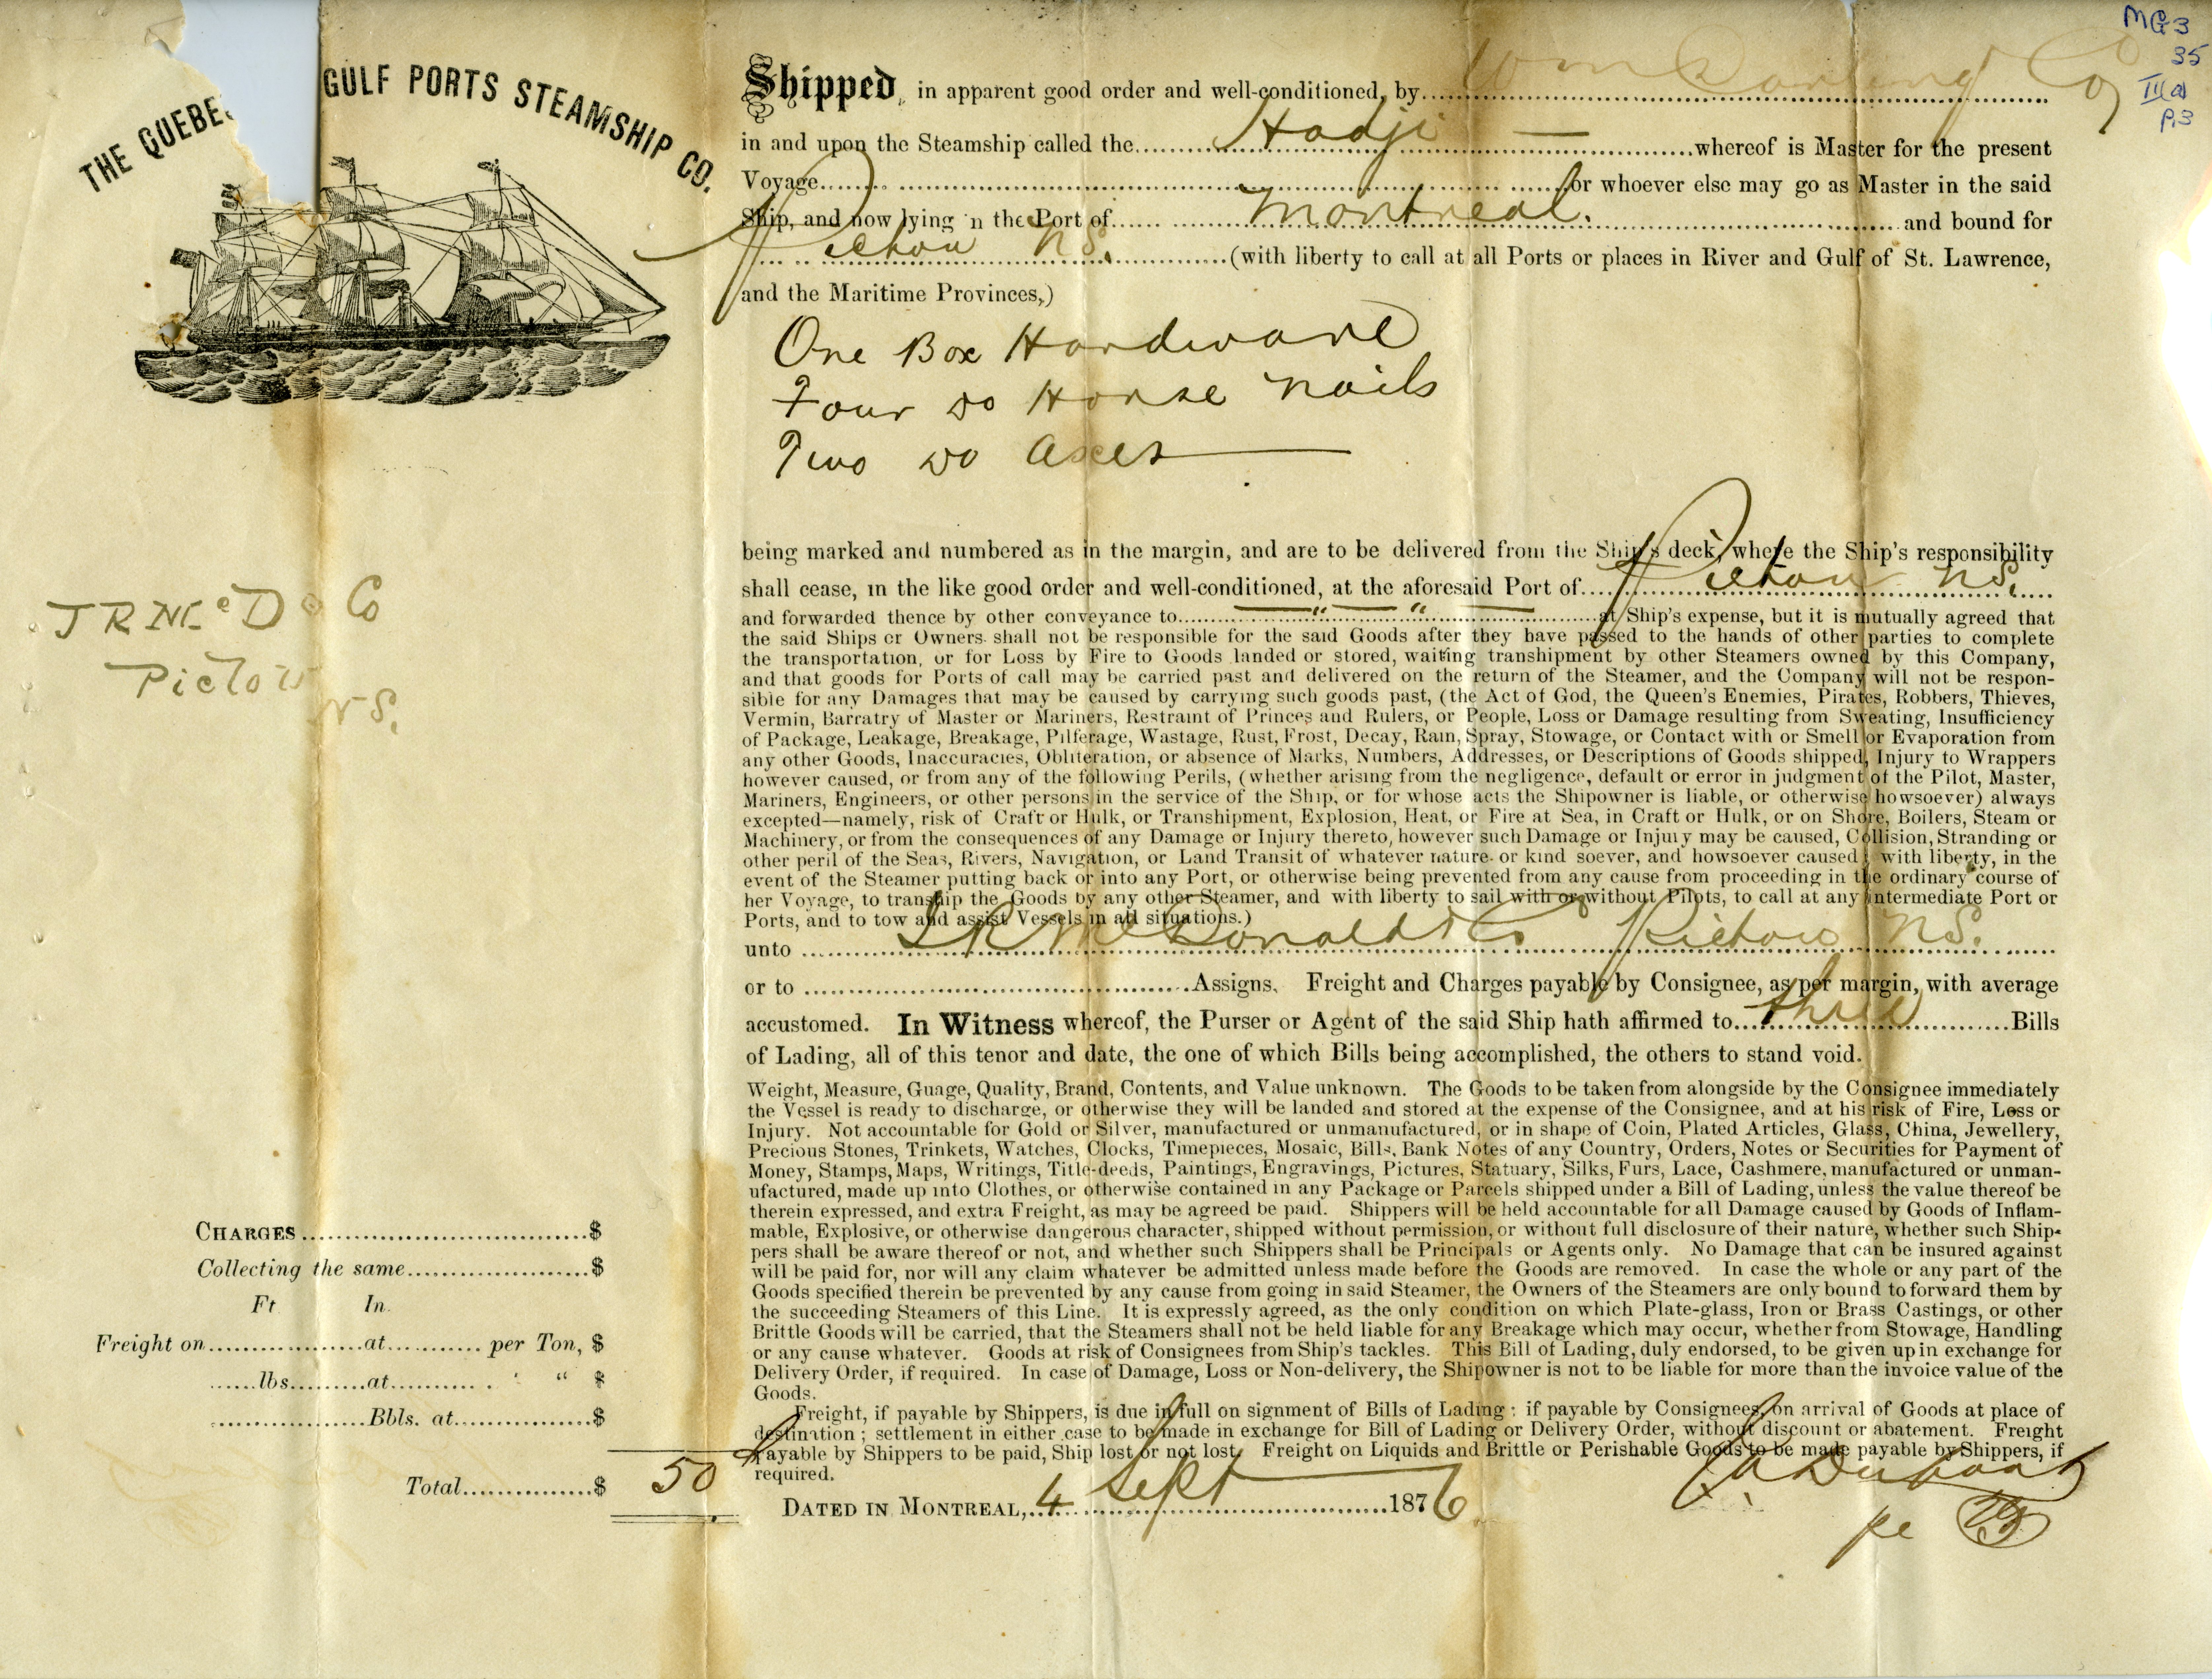 MG3
35
III(a)
P.3
THE QUEBE GULF PORTS STEAMSHIP CO.
Shipped, in apparent good order and well-conditioned, by Wm Darling Co
in and upon the Steamship called the Hadji whereof is Master for the present
Voyage or whoever else may go as Master in the said
Ship, and now lying in the Port of Montreal. and bound for
Pictou N.S. (with liberty to call at all Ports or places in River and Gulf of St. Lawrence,
and the Maritime Provinces,)
One Box Hardware
Four Do Horse Nails
Two Do Axes
being marked and numbered as in the margin, and are to be delivered from the Ship's deck, where the Ship's responsibility
shall cease, in the like good order and well-conditioned, at the aforesaid Port of Pictou N.S.
and forwarded thence by other conveyance to " " at Ship's expense, but it is mutually agreed that
the said Ships or Owners shall not be responsible for the said Goods after they have passed to the hands of other parties to complete
the transportation, or for Loss by Fire to Goods landed or stored, waiting transhipment by other Steamers owned by this Company,
and that goods for Ports of call may be carried past and delivered on the return of the Steamer, and the Company will not be respon-
sible for any Damages that may be caused by carrying such goods past, (the Act of God, the Queen's Enemies, Pirates, Robbers, Thieves,
Vermin, Barratry of Master or Mariners, Restraint of Princes and Rulers, or People, Loss or Damage resulting from Sweating, Insufficiency
of Package, Leakage, Breakage, Pilferage, Wastage, Rust, Frost, Decay, Rain, Spray, Stowage, or Contact with or Smell or Evaporation from
any other Goods, Inaccuracies, Obliteration, or absence of Marks, Numbers, Addresses, or Descriptions of Goods shipped, Injury to Wrappers
however caused, or from any of the following Perils, (whether arising from the negligence, default or error in judgment of the Pilot, Master,
Mariners, Engineers, or other persons in the service of the Ship, or for whose acts the Shipowner is liable, or otherwise howsoever) always
excepted—namely, risk of Craft or Hulk, or Transhipment, Explosion, Heat, or Fire at Sea, in Craft or Hulk, or on Shore, Boilers, Steam or
Machinery, or from the consequences of any Damage or Injury thereto, however such Damage or Injury may be caused, Collision, Stranding or
other peril of the Seas, Rivers, Navigation, or Land Transit of whatever nature or kind soever, and howsoever caused, with liberty, in the
event of the Steamer putting back or into any Port, or otherwise being prevented from any cause from proceeding in the ordinary course of
her Voyage, to tranship the Goods by any other Steamer, and with liberty to sail with or without Pilots, to call at any intermediate Port or
Ports, and to tow and assist Vessels in all situations.)
unto J R McDonald & Co Pictou N.S.
or to Assigns. Freight and Charges payable by Consignee, as per margin, with average
accustomed. In Witness whereof, the Purser or Agent of the said Ship hath affirmed to three Bills
of Lading, all of this tenor and date, the one of which Bills being accomplished, the others to stand void.
Weight, Measure, Guage, Quality, Brand, Contents, and Value unknown. The Goods to be taken from alongside by the Consignee immediately
the Vessel is ready to discharge, or otherwise they will be landed and stored at the expense of the Consignee, and at his risk of Fire, Loss or
Injury. Not accountable for Gold or Silver, manufactured or unmanufactured, or in shape of Coin, Plated Articles, Glass, China, Jewellery,
Precious Stones, Trinkets, Watches, Clocks, Timepieces, Mosaic, Bills, Bank Notes of any Country, Orders, Notes or Securities for Payment of
Money, Stamps, Maps, Writings, Title-deeds, Paintings, Engravings, Pictures, Statuary, Silks, Furs, Lace, Cashmere, manufactured or unman-
ufactured, made up into Clothes, or otherwise contained in any Package or Parcels shipped under a Bill of Lading, unless the value thereof be
therein expressed, and extra Freight, as may be agreed be paid. Shippers will be held accountable for all Damage caused by Goods of Inflam-
mable, Explosive, or otherwise dangerous character, shipped without permission, or without full disclosure of their nature, whether such Ship-
pers shall be aware thereof or not, and whether such Shippers shall be Principals or Agents only. No Damage that can be insured against
will be paid for, nor will any claim whatever be admitted unless made before the Goods are removed. In case the whole or any part of the
Goods specified therein be prevented by any cause from going in said Steamer, the Owners of the Steamers are only bound to forward them by
the succeeding Steamers of this Line. It is expressly agreed, as the only condition on which Plate-glass, Iron or Brass Castings, or other
Brittle Goods will be carried, that the Steamers shall not be held liable for any Breakage which may occur, whether from Stowage, Handling
or any cause whatever. Goods at risk of Consignees from Ship's tackles. This Bill of Lading, duly endorsed, to be given up in exchange for
Delivery Order, if required. In case of Damage, Loss or Non-delivery, the Shipowner is not to be liable for more than the invoice value of the
Goods.
Freight, if payable by Shippers, is due in full on signment of Bills of Lading; if payable by Consignees, on arrival of Goods at place of
destination; settlement in either case to be made in exchange for Bill of Lading or Delivery Order, without discount or abatement. Freight
Payable by Shippers to be paid, Ship lost or not lost. Freight on Liquids and Brittle or Perishable Goods to be made payable by Shippers, if
required.
DATED IN MONTREAL, 4 Sept 1876
pe
J R McD & Co
Pictou
N S.
CHARGES $
Collecting the same $
Ft In.
Freight on at per Ton, $
lbs at " " $
Bbls. at $
Total $ 50